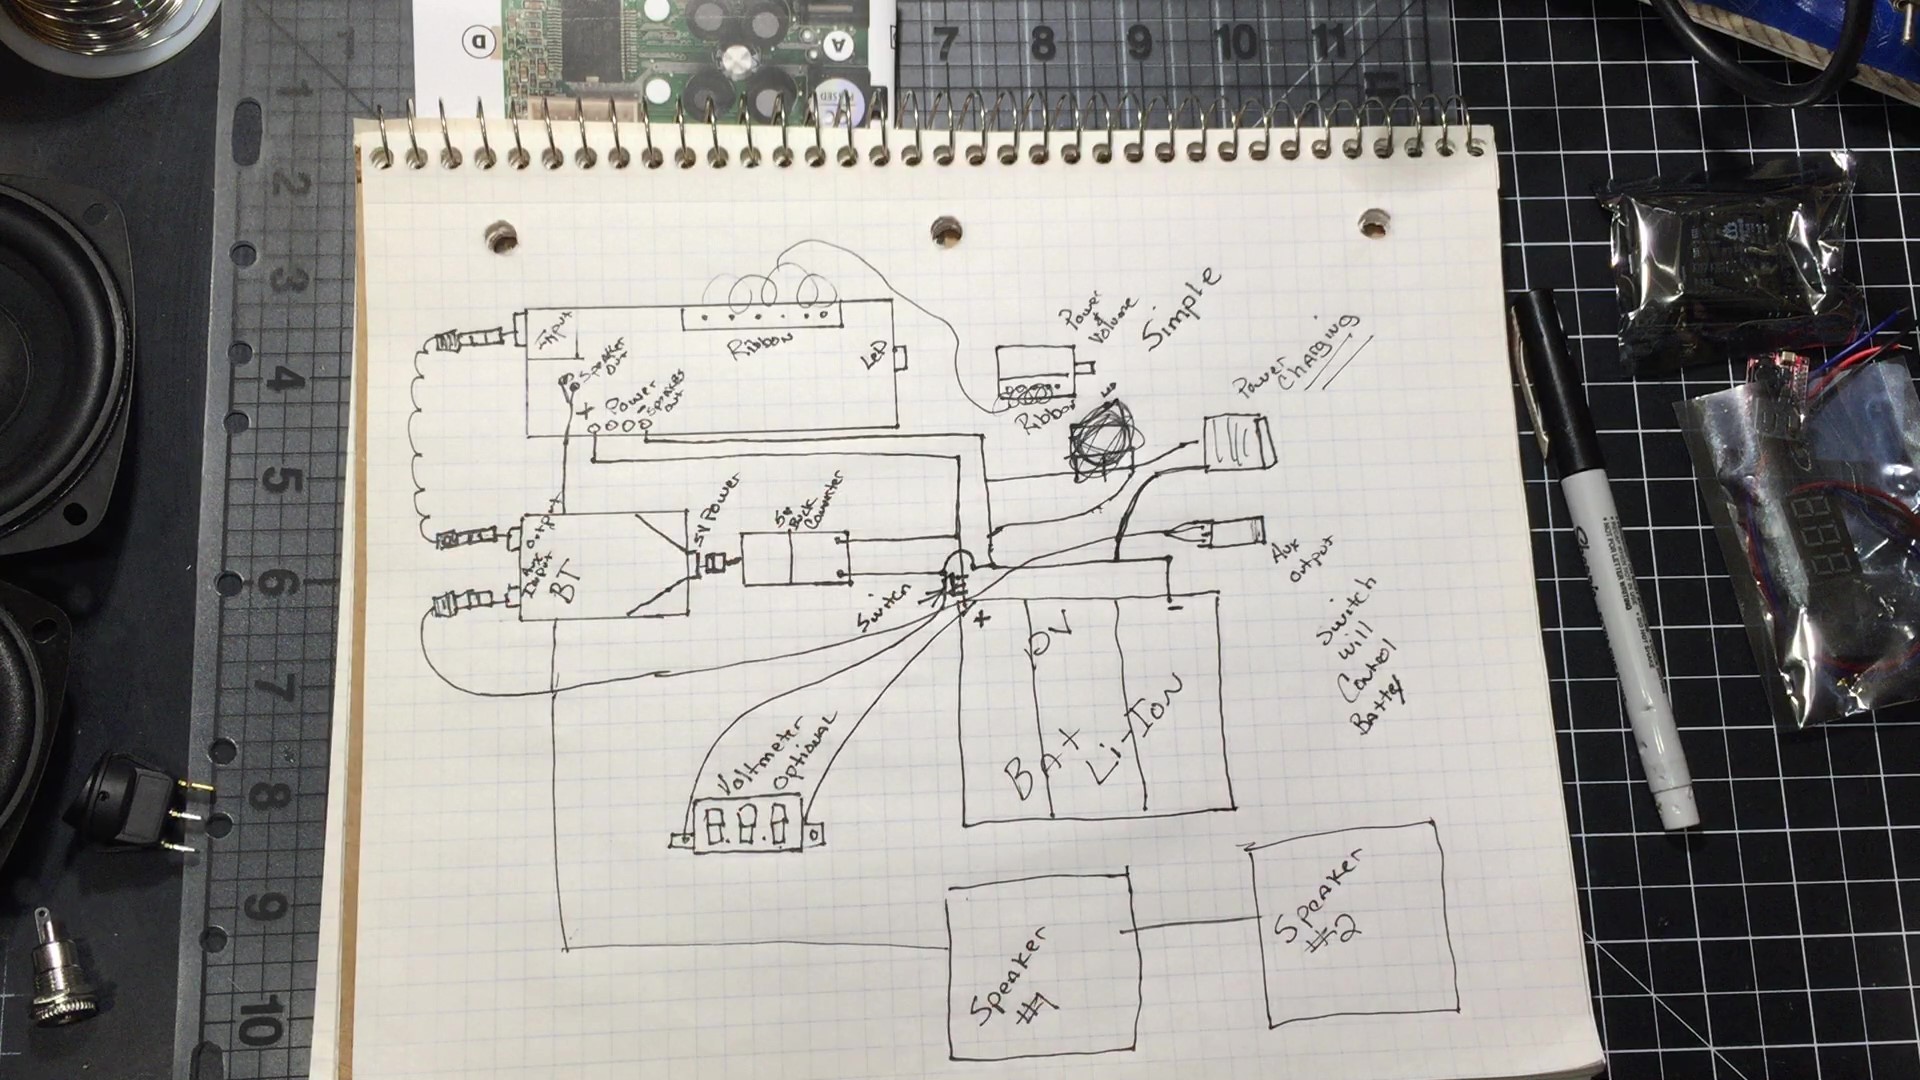 D
A
7 8 9 10 11
1
2
3
4
5
6
7
8
9
10
Input
Speaker
out
+
Power
-
Speaker
out
Ribbon
LED
Power
&
Volume
Simple
Ribbon
Power
Charging
Output
Aux
Input
BT
5V Power
5v
Buck
Converter
Switch
+
-
Aux
Output
Switch
will
Control
Battery
BAt
Li-Ion
Voltmeter
Optional
8.8.8
Speaker
#1
Speaker
#2